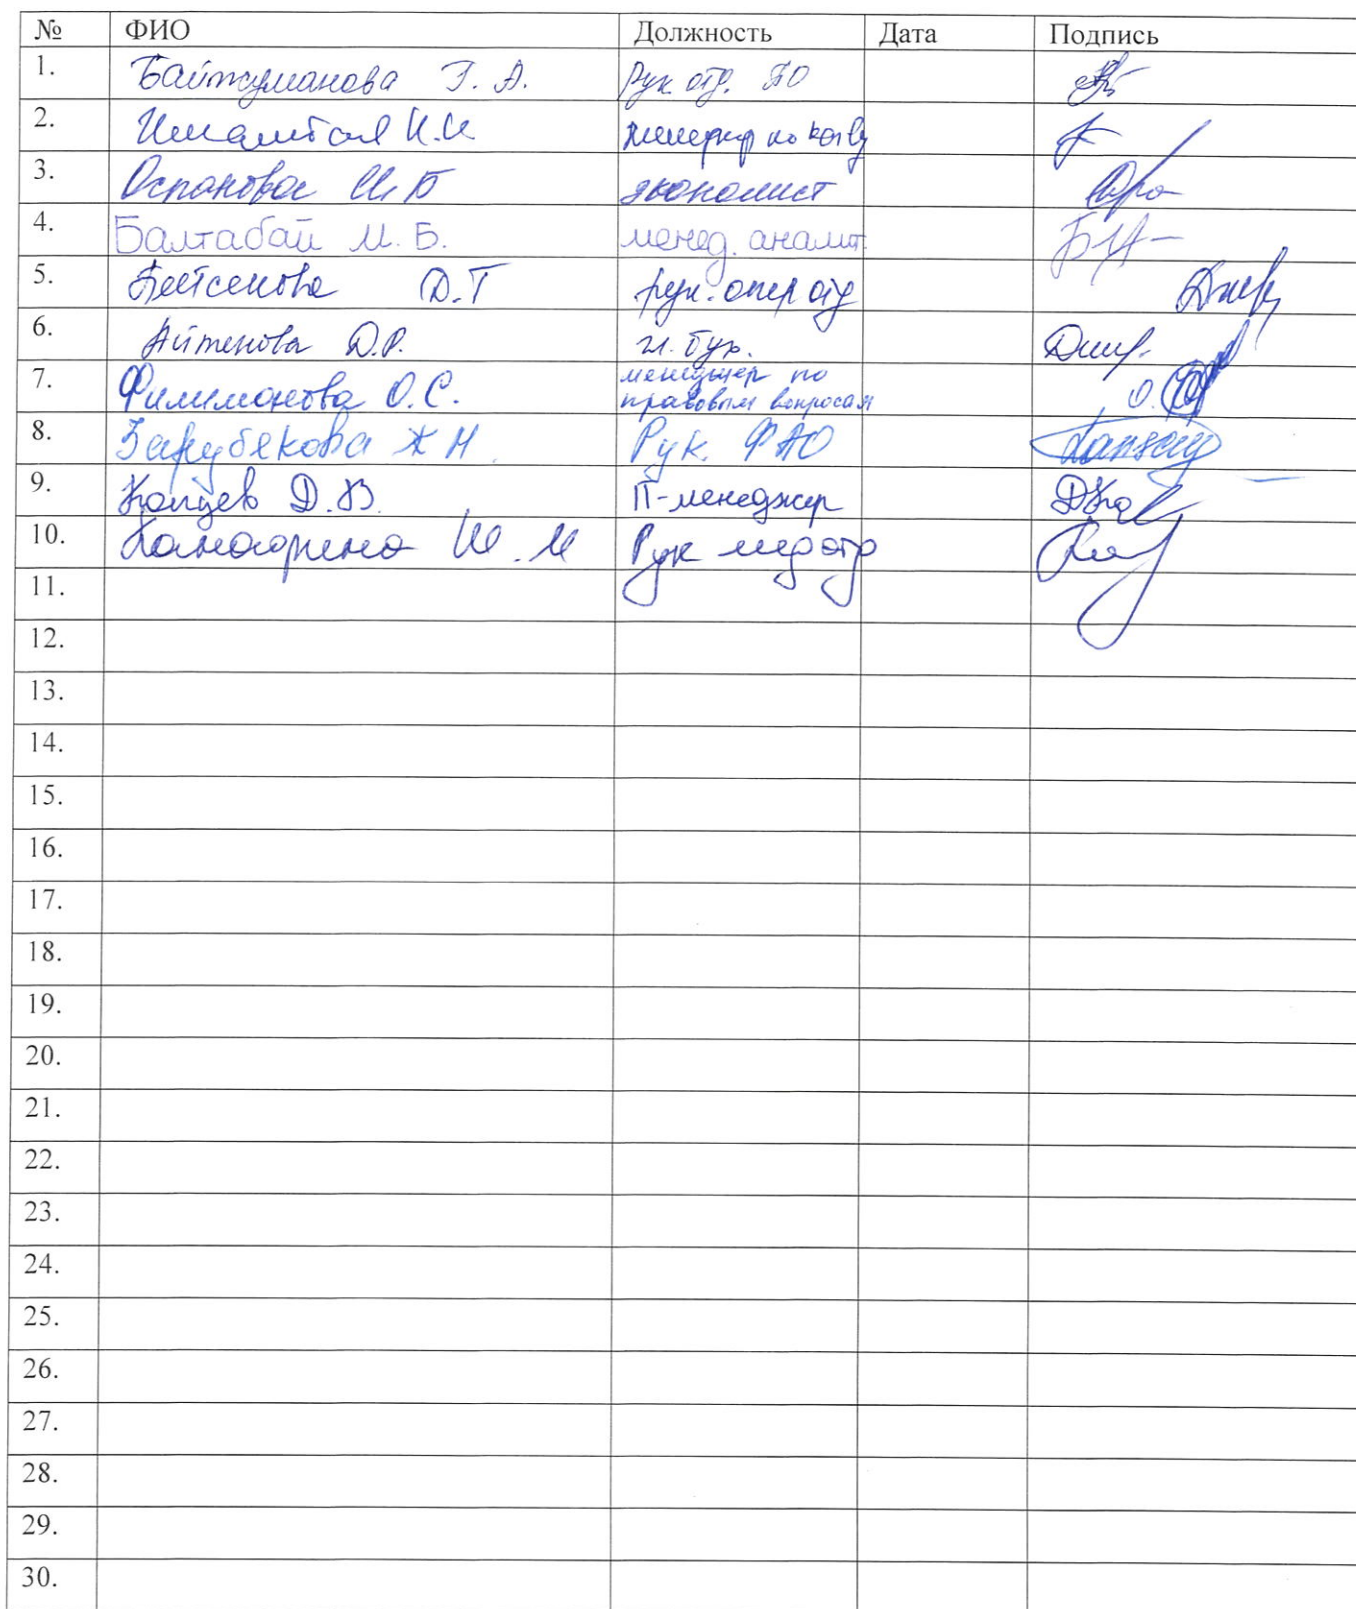 № ФИО Должность Дата Подпись
1. Байжуманова Г. А. Рук. отд. ПО
2. И.И менеджер по кач-ву
3. Оспанова Ш. Б экономист
4. Балтабай М. Б. менед. аналит.
5. Бейсенова Д.Т рук. опер отд
6. Айтенова Д.Р. гл. бух.
7. Филимонова О.С. менеджер по
правовым вопросам
8. Зарубекова Ж Н. Рук. ФАО
9. Копцев Д.В. IT-менеджер
10. Ш. М Рук мед отд
11.
12.
13.
14.
15.
16.
17.
18.
19.
20.
21.
22.
23.
24.
25.
26.
27.
28.
29.
30.